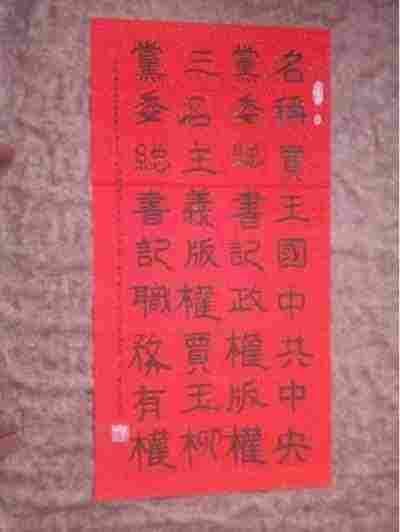 名稱賈王國中共中央
黨委總書記政權版權
三名主義版權賈玉柳
黨委總書記職務有權